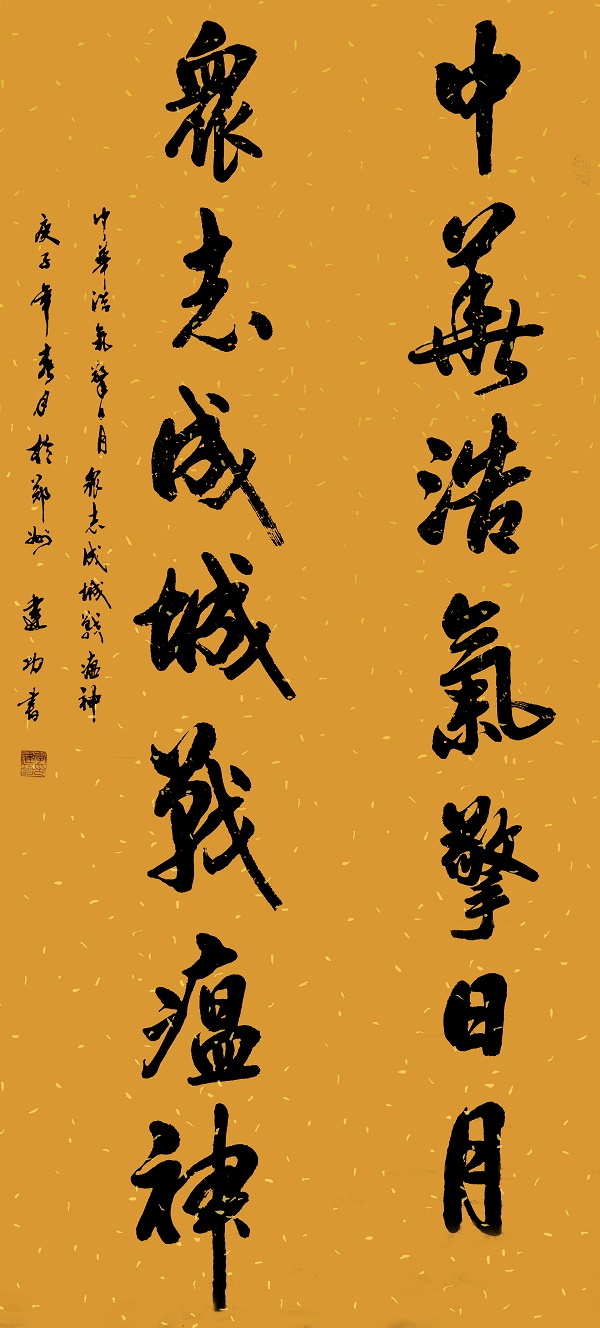 中華浩氣擎日月
眾志成城戰瘟神
中華浩氣擎日月 眾志成城戰瘟神
庚子年春月於鄭州 建功書